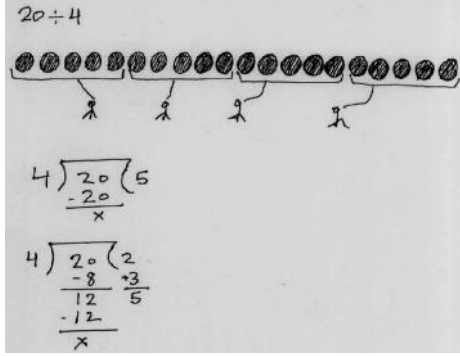 20÷4
4)20(5
-20
x
4)20(2
-8 +3
12 5
-12
x